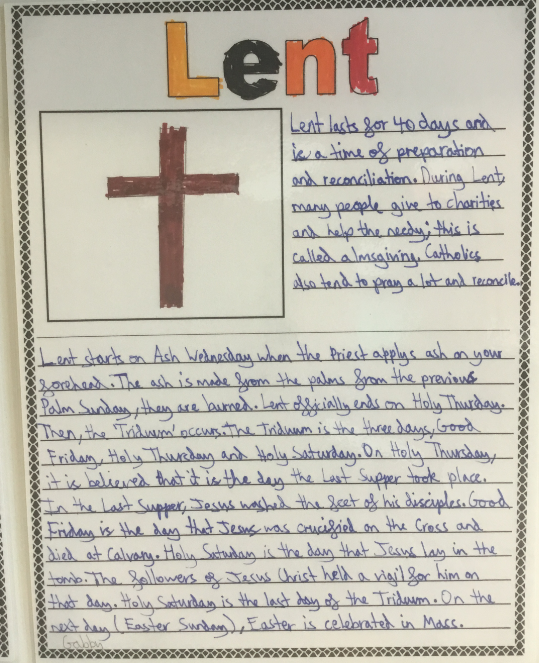 Lent
Lent lasts for 40 days and
is a time of preparation
and reconciliation. During Lent,
many people give to charities
and help the needy; this is
called almsgiving. Catholics
also tend to pray a lot and reconcile.
Lent starts on Ash Wednesday when the Priest applys ash on your
forehead. The ash is made from the palms from the previous
Palm Sunday, they are burned. Lent officially ends on Holy Thursday.
Then, the 'Triduum' occurs. The Triduum is the three days, Good
Friday, Holy Thursday and Holy Saturday. On Holy Thursday,
it is believed that it is the day the Last Supper took place.
In the Last Supper, Jesus washed the feet of his disciples. Good
Friday is the day that Jesus was crucified on the Cross and
died at Calvary. Holy Saturday is the day that Jesus lay in the
tomb. The followers of Jesus Christ held a vigil for him on
that day. Holy Saturday is the last day of the Triduum. On the
next day (Easter Sunday), Easter is celebrated in Mass.
Gabby